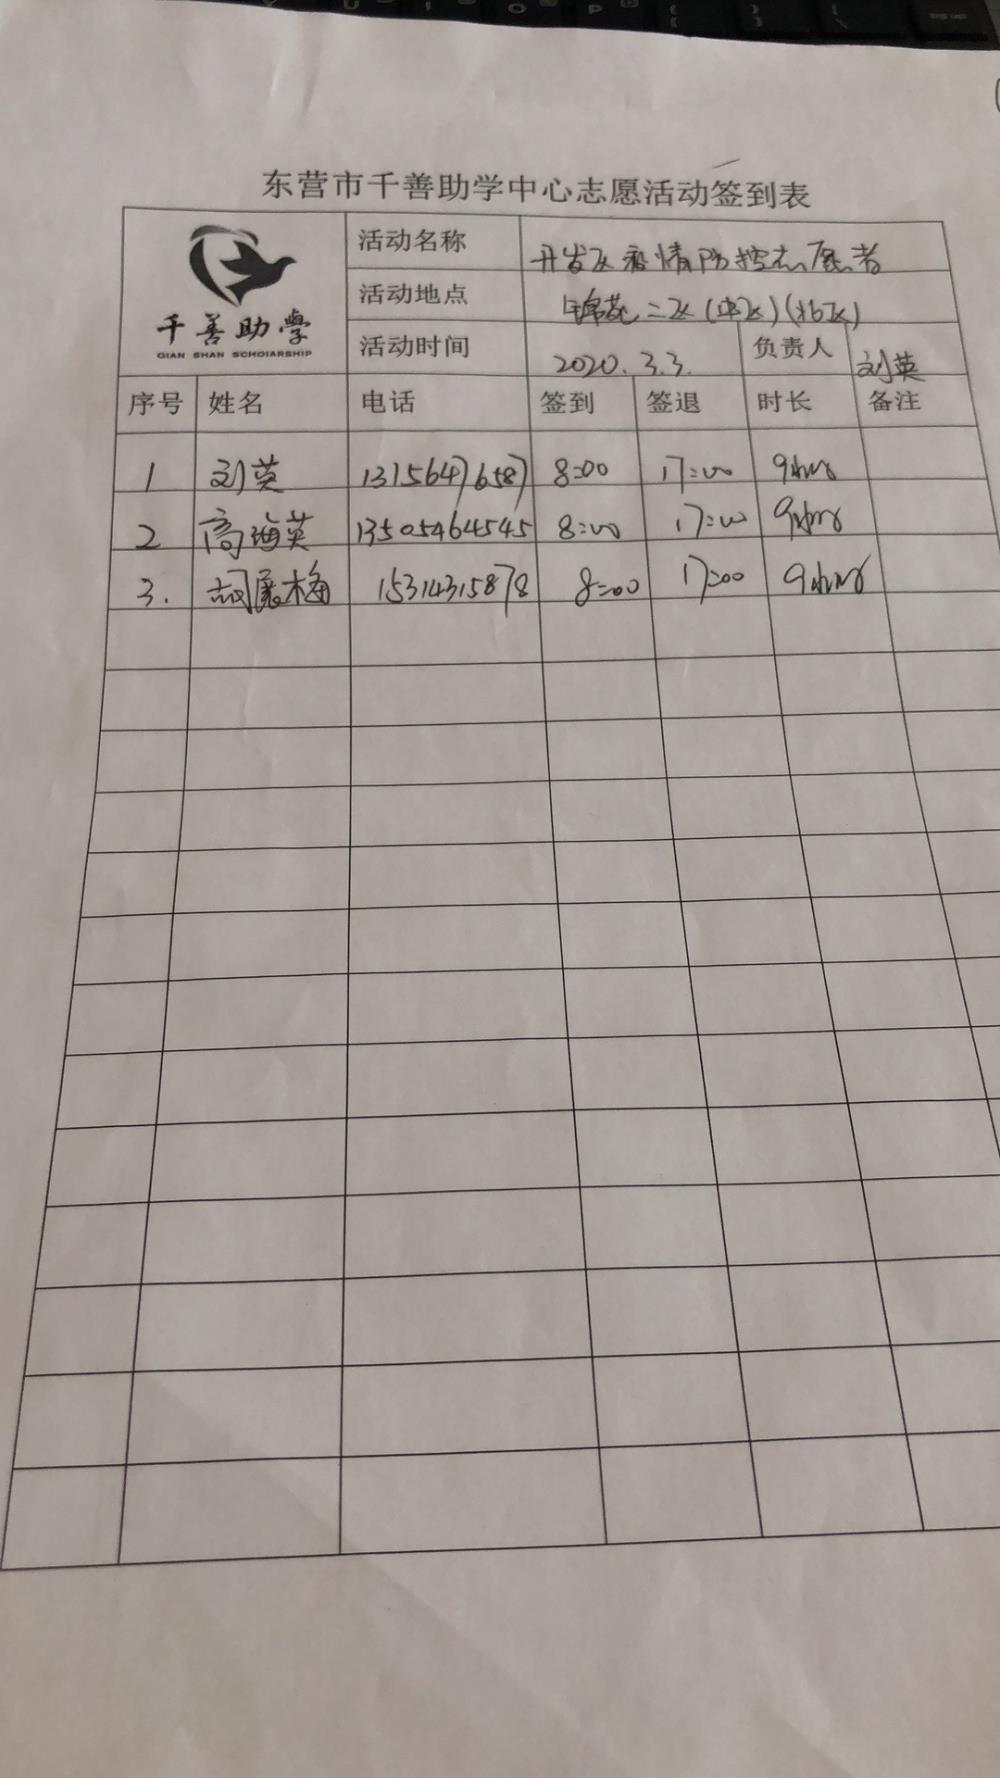 东营市千善助学中心志愿活动签到表
千善助學
QIAN SHAN SCHOIARSHIP
活动名称 开发区疫情防控志愿者
活动地点 锦苑二区(中区)(北区)
活动时间 2020.3.3. 负责人 刘英
序号 姓名 电话 签到 签退 时长 备注
1 刘英 13156476587 8:00 17:00 9小时
2 高海英 13505464545 8:00 17:00 9小时
3. 胡展梅 15314315878 8:00 17:00 9小时